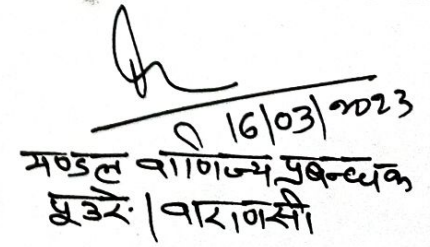 16/03/2023
मण्डल वाणिज्य प्रबन्धक
पूउरे. / वाराणसी